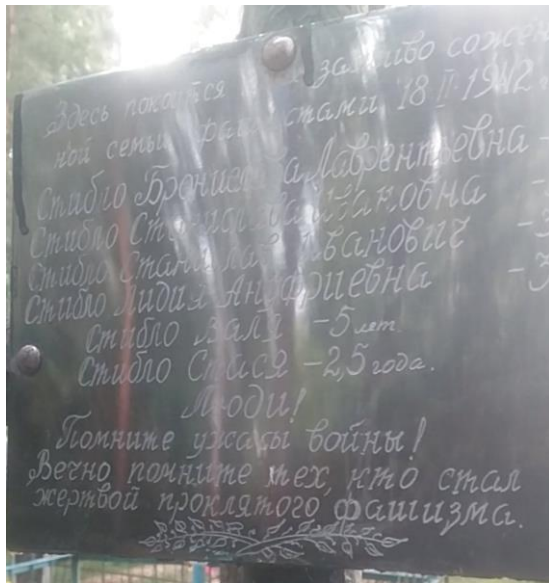 Здесь покоится заживо сожжен
ной семьи фашистами 18 II-1942 г
Стибло Бронислава Лаврентьевна -
Стибло Ивановна -
Стибло Станислав Иванович -3
Стибло Лидия Ануфриевна -3
Стибло Валя -5 лет.
Стибло Стася -2,5 года.
Люди!
Помните ужасы войны!
Вечно помните тех, кто стал
жертвой проклятого фашизма.